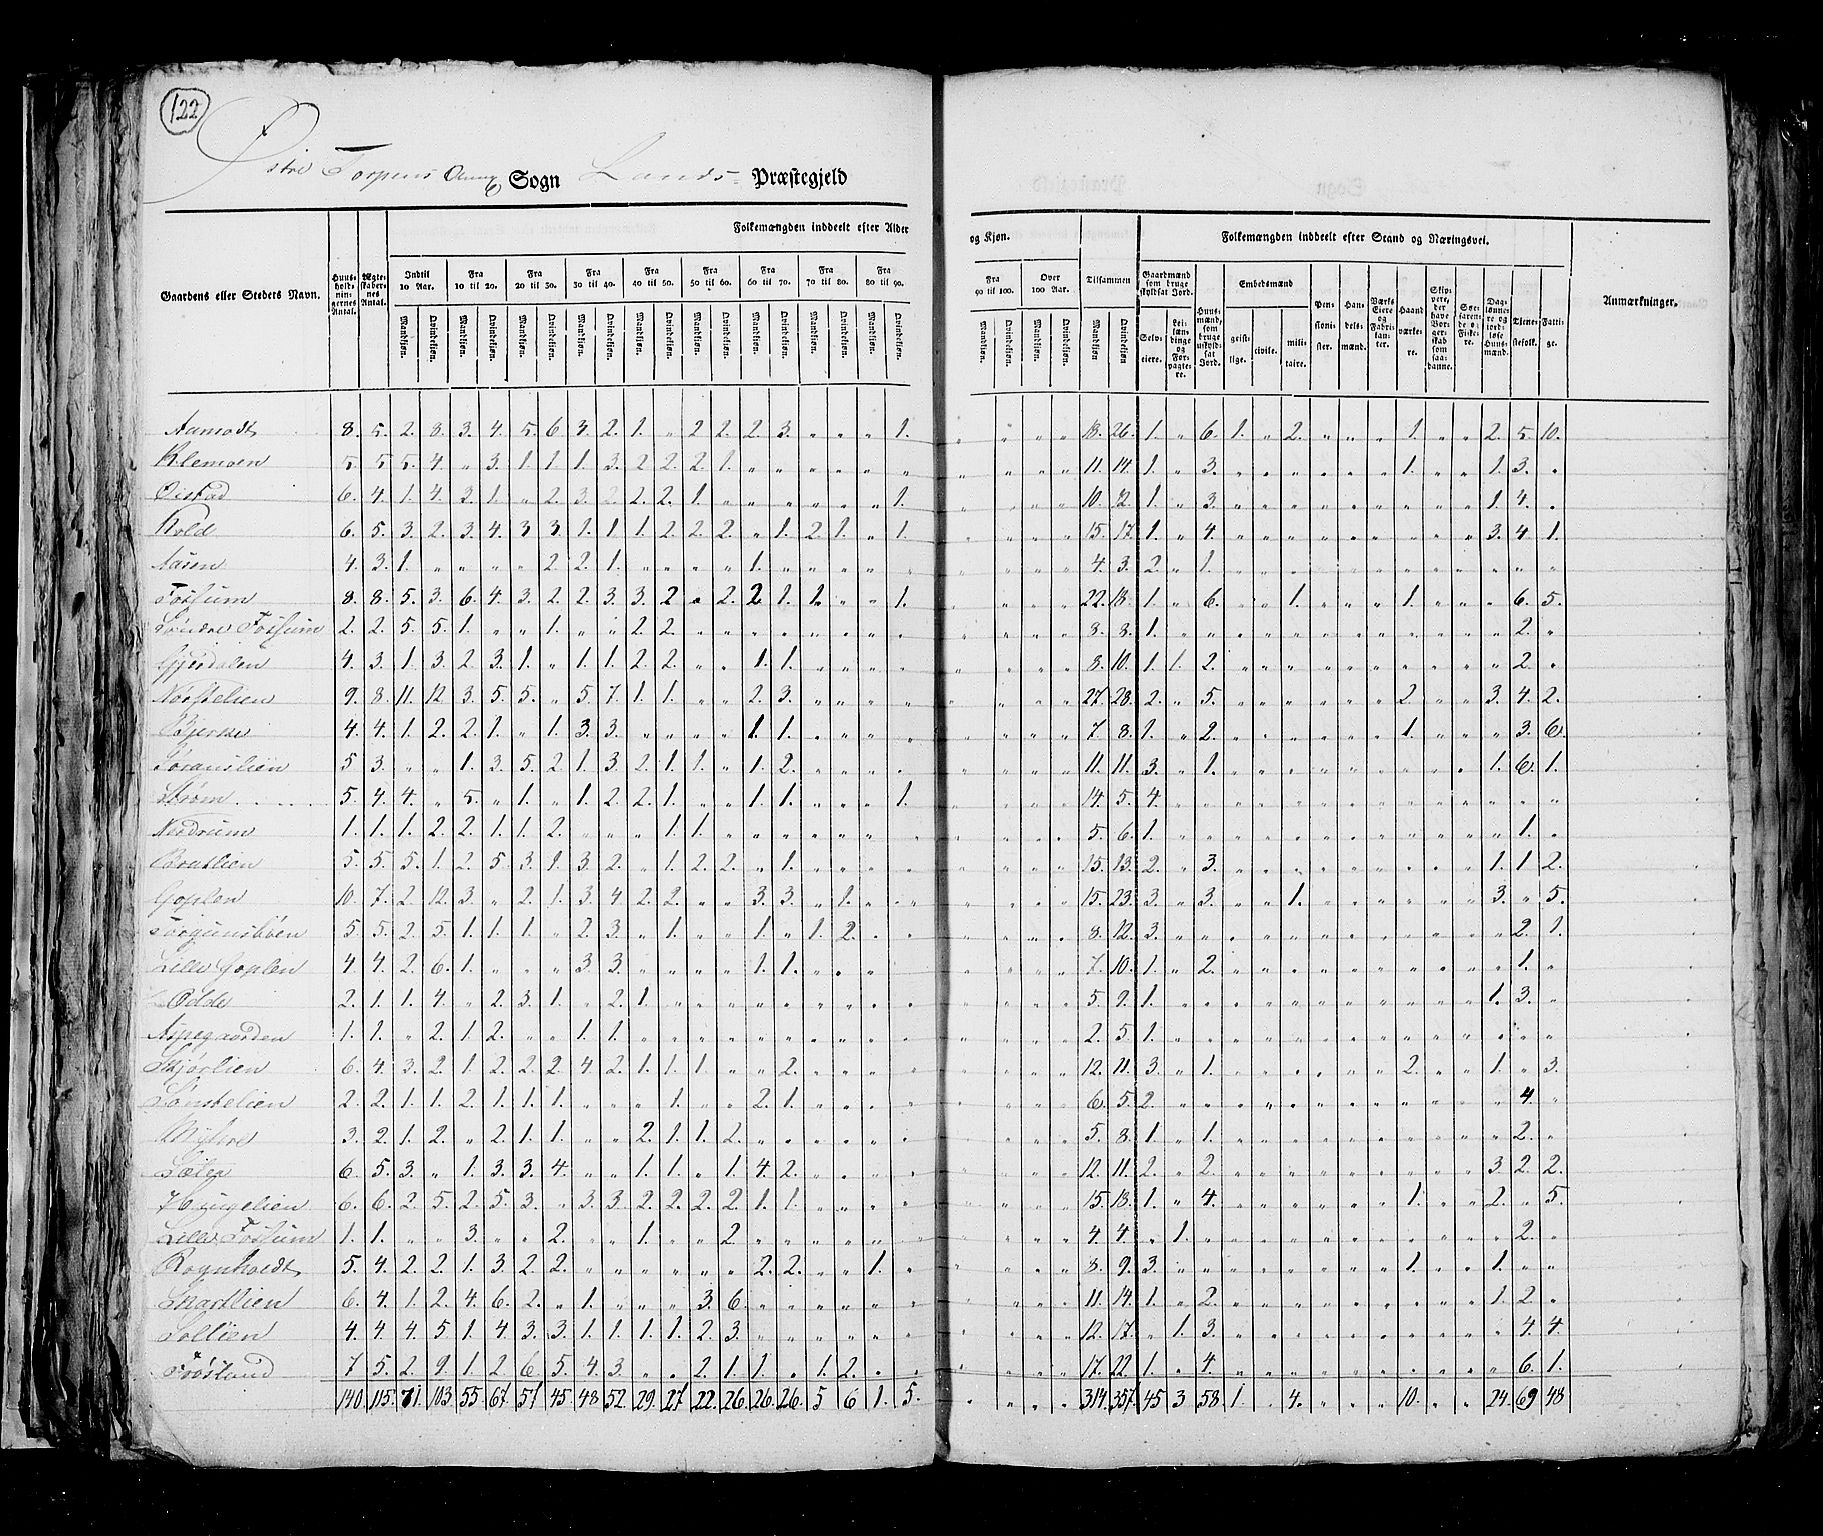 122
Østre Torpens Annex Sogn Lands Præstegjeld
Folkemængden inddeelt efter Alder og Kjøn.
Folkemængden inddeelt efter Stand og Næringsvei.
Gaardens eller Steders Navn. Huusholdningernes Antal. Ægteskabernes Antal. Indtil 10 Aar. Fra 10 til 20. Fra 20 til 30. Fra 30 til 40. Fra 40 til 50. Fra 50 til 60. Fra 60 til 70. Fra 70 til 80. Fra 80 til 90. Fra 90 til 100. Over 100 Aar. Tilsammen Gaardmænd som bruge skyldsat Jord. Huusmænd, som bruge uskyldsat Jord. Embedsmænd Pensionister. Handelsmænd. Værks Eiere og Fabrikanter. Haandværkere. Skippere, der have Borgerskab som saadanne. Søefarende og Fiskere. Daglønnere og jordløse Huusmænd. Tjenestefolk. Fattige. Anmærkninger.
Mandkjøn. Qvindekjøn. Selveiere. Leilændinge og Forpagtere. geistlige. civile. militaire.
Aamodt 8. 5. 2. 8. 3. 4. 5. 6 3. 2. 1. „ 2 2. 2. 3. „ „ „ 1. „ „ „ „ 18. 26. 1. „ 6. 1. „ 2. „ „ „ 1. „ „ 2. 5. 10.
Klemoen 5. 5 5. 4. „ 3. 1. 1. 1. 3. 2 2. 2. 1. „ „ „ „ „ „ „ „ „ „ 11. 14. 1. „ 3. „ „ „ „ „ „ 1. „ „ 1. 3. „
Oistad 6. 4. 1. 4. 3. 1. „ 2. 3. 2. 2. 2. 1. „ „ „ „ „ „ 1. „ „ „ „ 10. 12. 1. „ 3. „ „ „ „ „ „ „ „ „ 1. 4. „
Kold 6. 5. 3. 2. 3. 4. 3 3. 1. 1. 1. 2. 2. 2. „ 1. 2. 1. „ 1. „ „ „ „ 15. 17. 1. „ 4. „ „ „ „ „ „ „ „ „ 3. 4. 1.
Aasen 4. 3. 1. „ „ „ „ 2. 2. 1. „ „ „ „ 1. „ „ „ „ „ „ „ „ „ 4. 3. 2. „ 1. „ „ „ „ „ „ „ „ „ „ „ „
Fossum 8. 8. 5. 3. 6. 4. 3. 2. 2. 3. 3. 2 „ 2. 2 1. 1. „ „ 1. „ „ „ „ 22. 18. 1. „ 6. „ „ 1. „ „ „ 1. „ „ „ 6. 5.
Søndre Fossum 2. 2. 5. 5. 1. „ „ 1. „ „ 2. 2. „ „ „ „ „ „ „ „ „ „ „ „ 8. 8. 1. „ „ „ „ „ „ „ „ „ „ „ „ 2. „
Gjerdalen 4. 3. 1. 3. 2. 3. 1. „ 1. 1. 2. 2. „ „ 1. 1. „ „ „ „ „ „ „ „ 8. 10. 1. 1. 2. „ „ „ „ „ „ „ „ „ „ 2. „
Nørstelien 9. 8. 11. 12 3. 5. 5. „ 5. 7. 1. 1. „ „ 2. 3. „ „ „ „ „ „ „ „ 27. 28. 2. „ 5. „ „ „ „ „ „ 2. „ „ 3. 4. 2.
Bjerke 4. 4. 1. 2. 2. 1. „ 1. 3. 3. „ „ „ „ 1. 1. „ „ „ „ „ „ „ „ 7. 8. 1. „ 2. „ „ „ „ „ „ 1. „ „ „ 3. 6.
Joranslien 5 3. „ „ 1. 3. 5. 2. 1. 3. 2. 1. 1. „ 1. 2. „ „ „ „ „ „ „ „ 11. 11. 3. „ 1. „ „ „ „ „ „ „ „ „ 1. 6. 1.
Strøm 5. 4. 4. „ 5. „ 1. „ 1. 2. 2. 1. „ „ 1. 1. „ „ „ 1. „ „ „ „ 14. 5. 4. „ „ „ „ „ „ „ „ „ „ „ „ „ „
Nerdrum 1. 1. 1. 2. 2. 1. 1. 2. „ „ „ 1. 1. „ „ „ „ „ „ „ „ „ „ „ 5. 6. 1. „ „ „ „ „ „ „ „ „ „ „ „ 1. „
Bratlien 5. 5. 5. 1. 2. 5. 3. 1. 3. 2. „ 1. 2. 2. „ 1. „ „ „ „ „ „ „ „ 15. 13. 2. „ 3. „ „ „ „ „ „ „ „ „ 1. 1. 2.
Goplen 10. 7. 2. 12. 3. „ 2. 1. 3. 4. 2. 2. „ „ 3. 3. „ 1. „ „ „ „ „ „ 15. 23. 3. „ 3. „ „ 1. „ „ „ „ „ „ 3. „ 5.
Torgunsbøen 5. 5. 2. 5. 1. 1. 1. „ 2. 3. „ 1. „ „ 1. „ 1. 2. „ „ „ „ „ „ 8. 12. 3. „ „ „ „ „ „ „ „ „ „ „ „ 2. 1.
Lille Goplen 4. 4. 2. 6. 1. „ „ „ 3. 3. „ „ „ „ 1. 1. „ „ „ „ „ „ „ „ 7. 10. 1. „ 2. „ „ „ „ „ „ „ „ „ „ 1. „
Odde 2. 1. 1. 4. „ 2. 3. 1. „ 2. 1. „ „ „ „ „ „ „ „ „ „ „ „ „ 5. 9. 1. „ „ „ „ „ „ „ „ „ „ „ 1. 3. „
Aspegaarden 1. 1. „ 2. 1. 2. „ „ 1. 1. „ „ „ „ „ „ „ „ „ „ „ „ „ „ 2. 5 1. „ „ „ „ „ „ „ „ „ „ „ „ „ „
Skjørlien 6. 4. 3. 2. 1. 2. 2. 2. 4. 2. 1. 1. 1. „ „ 2. „ „ „ „ „ „ „ „ 12. 11. 3. „ 1. „ „ „ „ „ „ 2. „ „ 1. „ 3.
Sønstelien 2. 2. 1. 1. 2. 1. 1. 1. „ „ „ 1. „ „ 2. 1. „ „ „ „ „ „ „ „ 6. 5. 2. „ „ „ „ „ „ „ „ „ „ „ „ 4. „
Myhre 3. 2. 1. 2. „ 2. 1. 1. „ „ 2. 1. 1. 2. „ „ „ „ „ „ „ „ „ „ 5. 8. 1. „ 1. „ „ „ „ „ „ „ „ „ „ 2. „
Sæter 6. 5. 3. „ 1. 3. 3. 4. „ „ 1. 1. „ 1. 4. 2. „ „ „ „ „ „ „ „ 12. 11. 2. „ 2. „ „ „ „ „ „ „ „ „ 3. 2. 2.
Haugelien 6. 6. 2. 5. 2. 5. 3. „ 3. 3. 2. 2. 2. 2. 1. 1. „ „ „ „ „ „ „ „ 15. 18. 1. „ 4. „ „ „ „ „ „ 1. „ „ 2. „ 5.
Lille Fossum 1. 1. „ „ 3. „ „ 2. „ „ 1. „ „ 2. „ „ „ „ „ „ „ „ „ „ 4. 4. „ 1. „ „ „ „ „ „ „ „ „ „ „ 2. „
Rognholdt 5. 4. 2. 2. 1. 3. 2. 2. „ „ „ „ „ „ 2. 2. „ „ 1. „ „ „ „ „ 8. 9. 3. „ „ „ „ „ „ „ „ 1. „ „ 1. „ „
Skartlien 6. 4. 1. 2. 4. 6. 2. „ 1. „ „ „ 3. 6. „ „ „ „ „ „ „ „ „ „ 11. 14. 1. „ 2. „ „ „ „ „ „ „ „ „ 1. 2. „
Sollien 4. 4. 4. 5 1. 4. 3. 3. 1. 1. 1. 1. 2. 3. „ „ „ „ „ „ „ „ „ „ 12. 17. „ 1. 3. „ „ „ „ „ „ „ „ „ „ 4. 4.
Frøsland 7 5. 2. 9. 1. 2 6 5. 4. 3. „ „ 2. 1. 1. „ 1. 2. „ „ „ „ „ „ 17. 22. 1. „ 4. „ „ „ „ „ „ „ „ „ „ 6. 1.
140 115. 71. 103 55 67. 51 45 48 52. 29. 27 22. 26. 26. 26. 5 6 1. 5. „ „ „ „ 314. 357. 45 3 58. 1. „ 4. „ „ „ 10. „ „ 24. 69 48